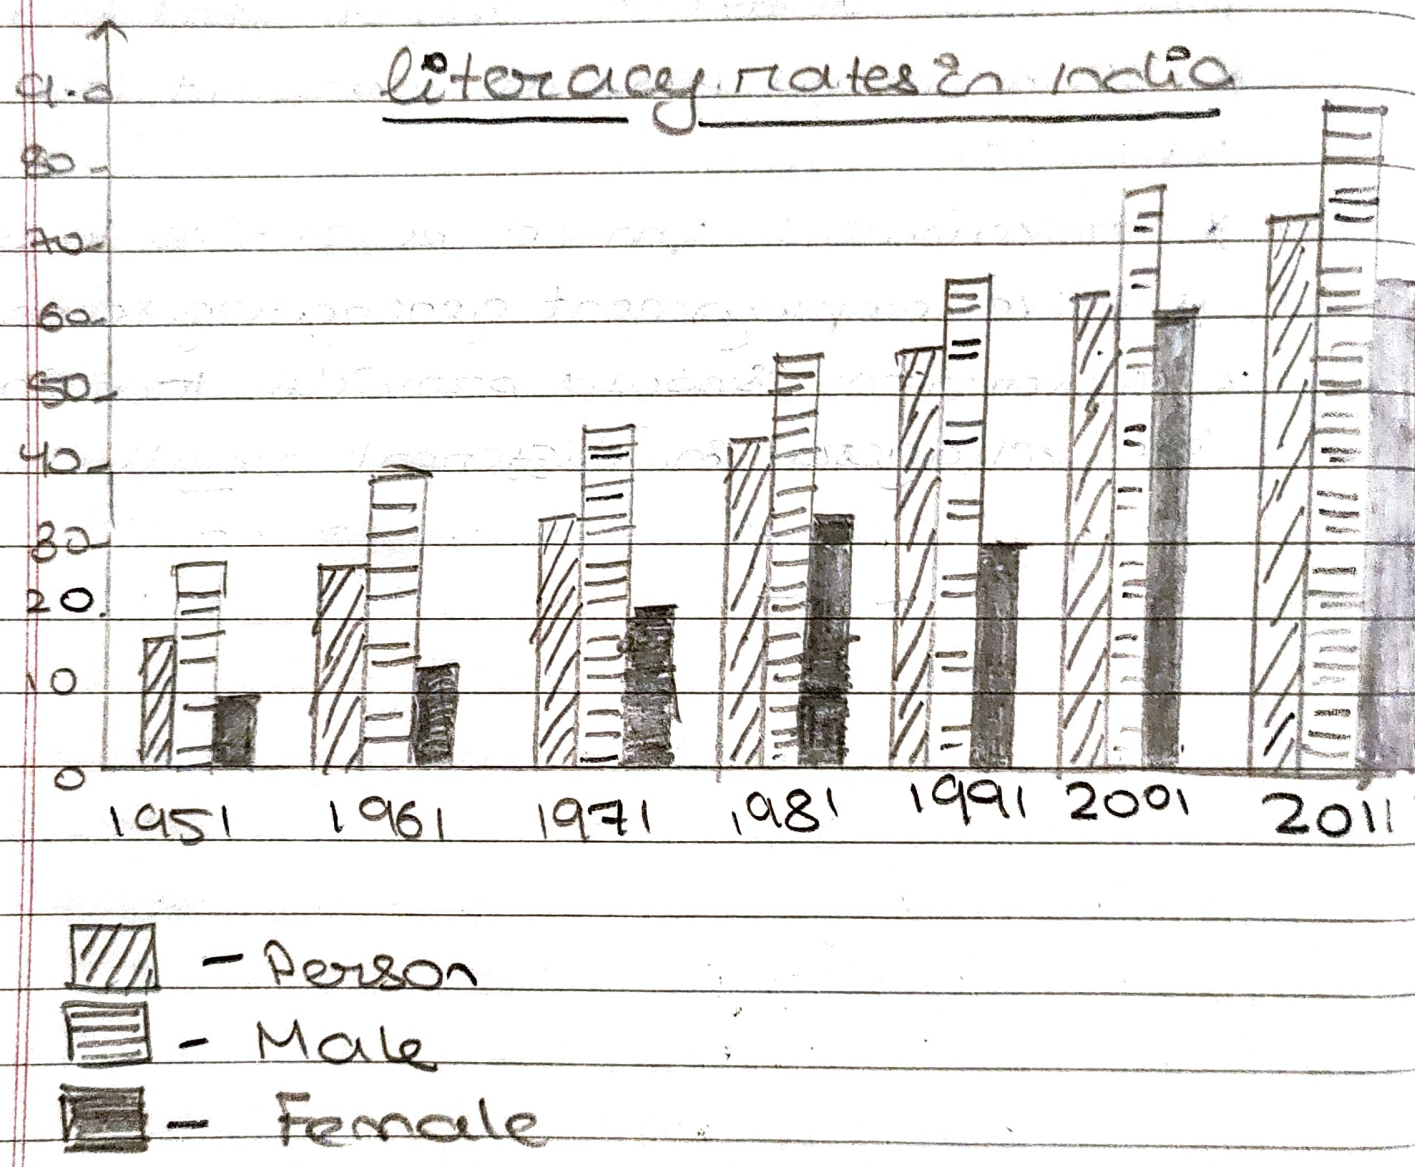 literacy rates in india
80
70
60
50
40
30
20
10
0
1951 1961 1971 1981 1991 2001 2011
- Person
- Male
- Female